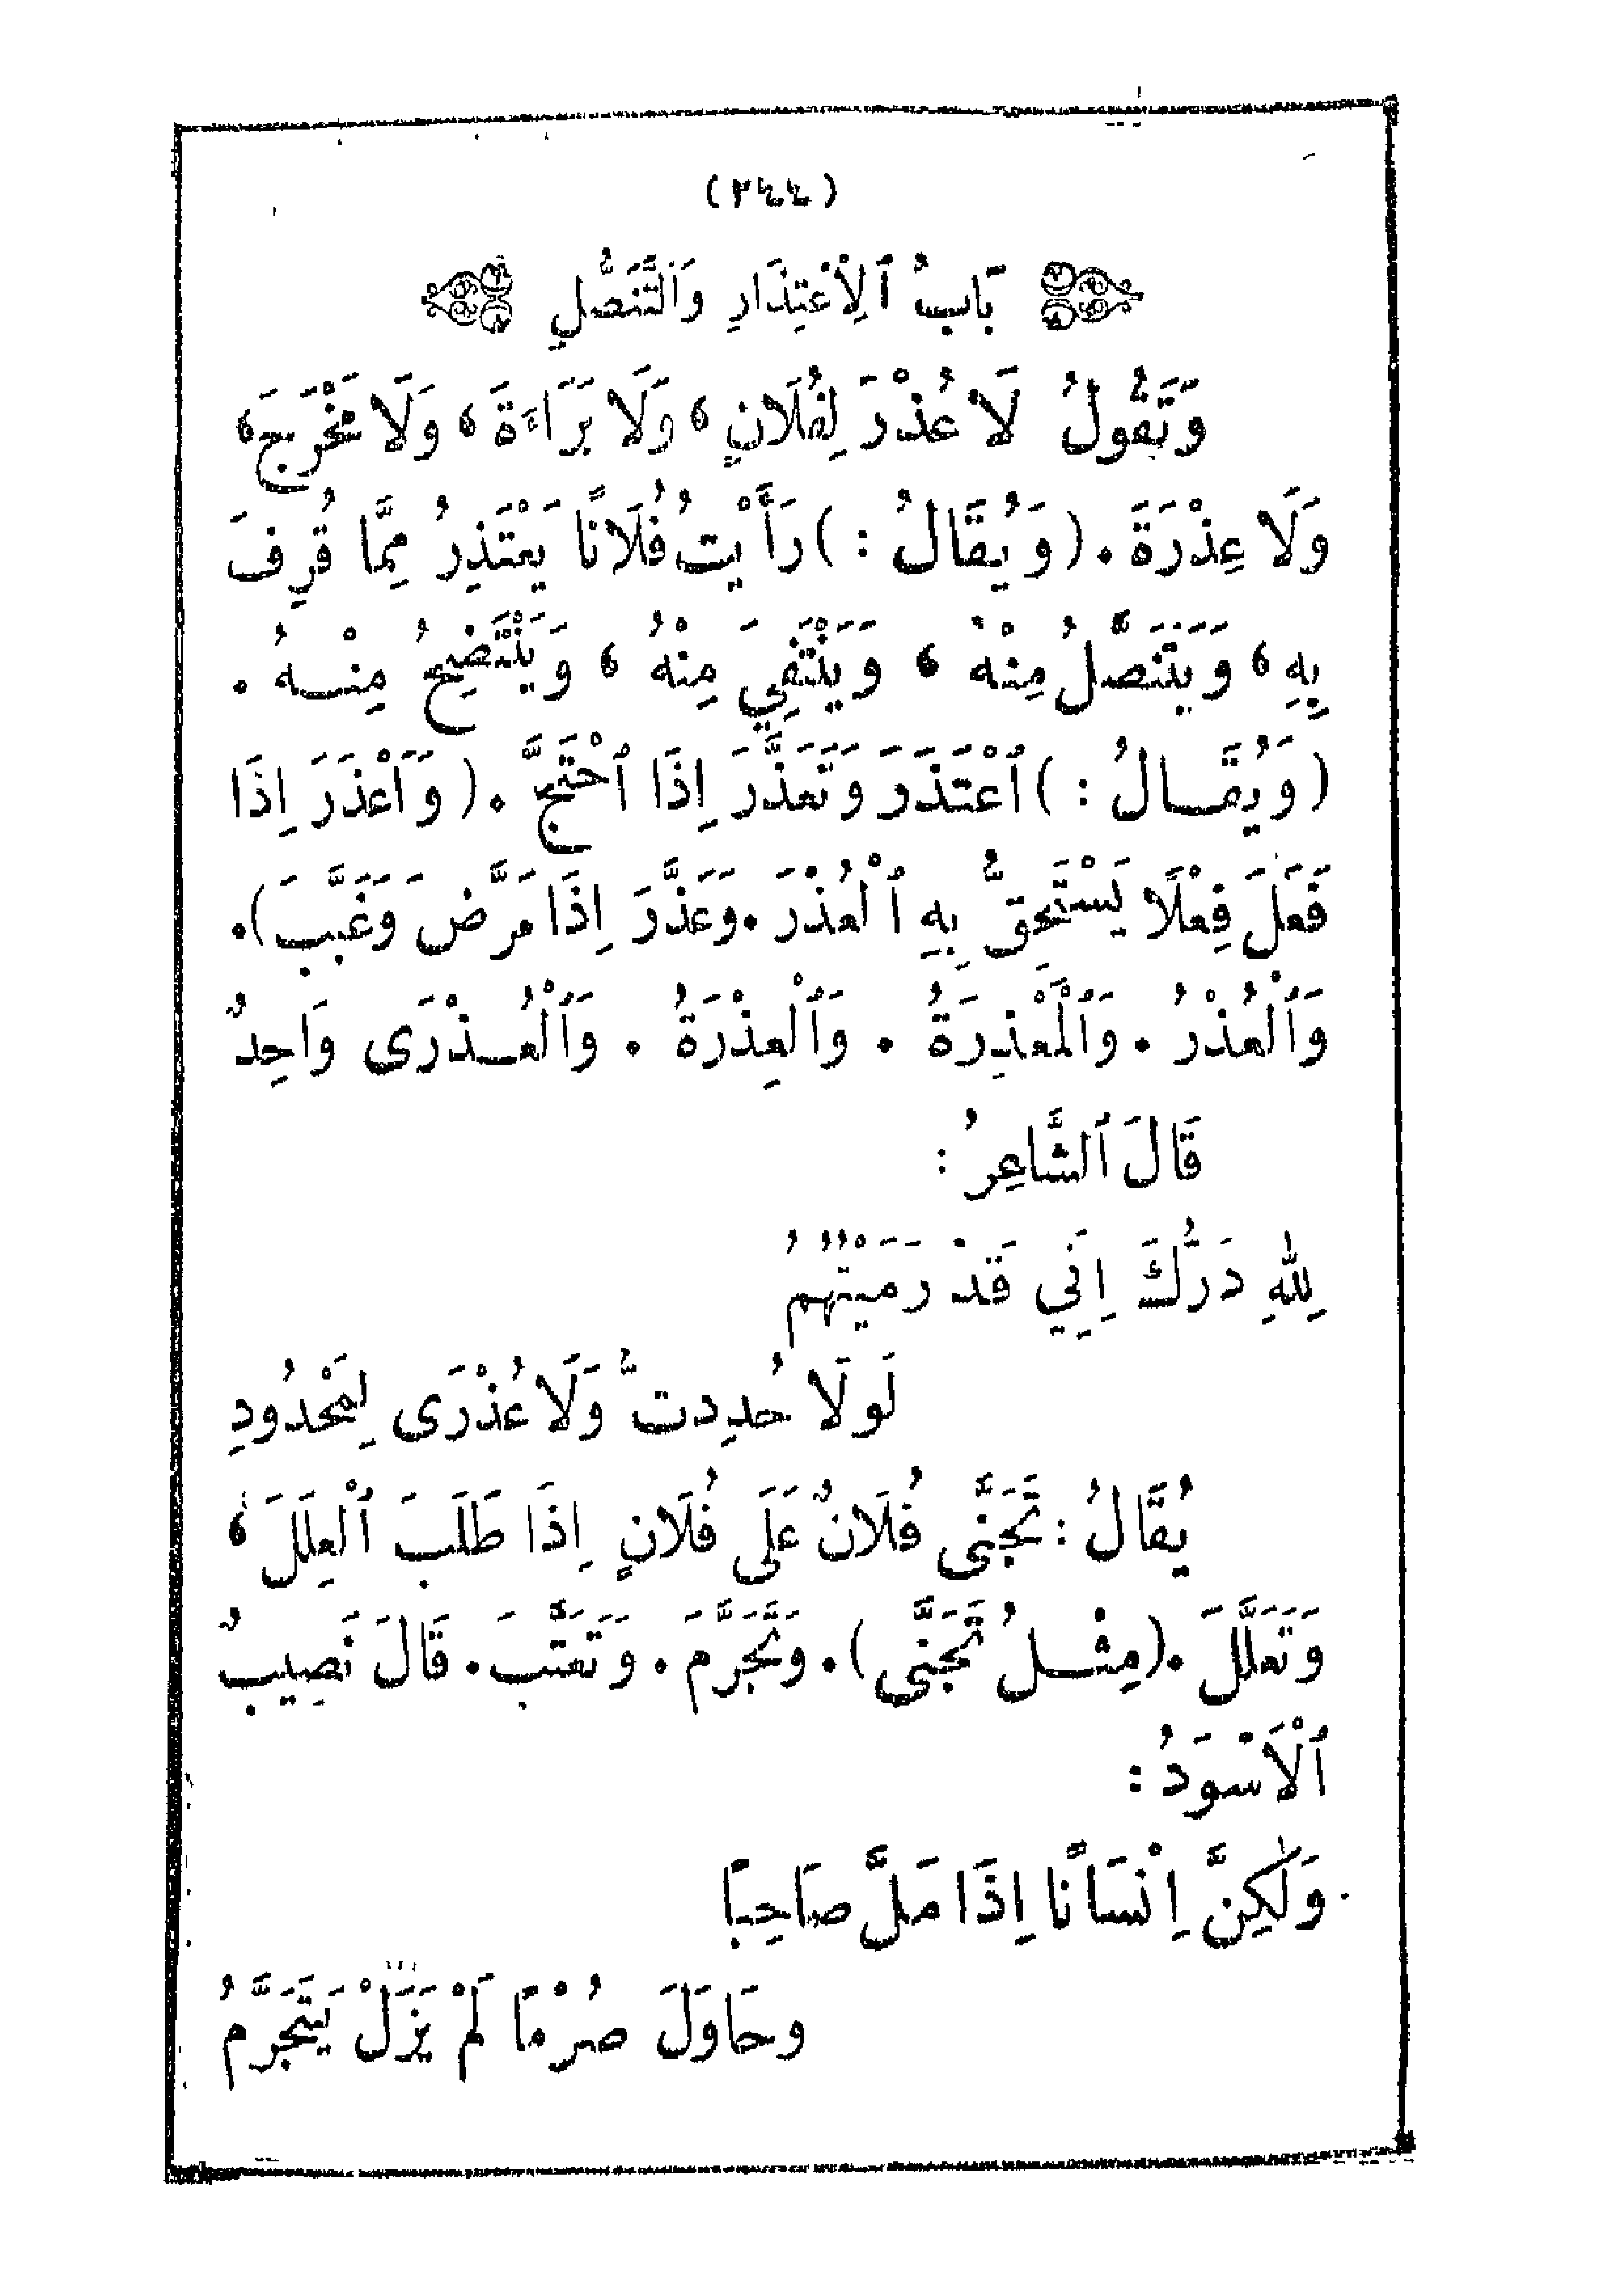 (٢٤٤)
بَابُ ٱلِاعْتِذَارِ وَٱلتَّنَصُّلِ
وَتَقُولُ لَا عُذْرَ لِفُلَانٍ، وَلَا بَرَاءَةَ، وَلَا مَخْرَجَ،
وَلَا عِذْرَةَ. (وَيُقَالُ:) رَأَيْتُ فُلَانًا يَعْتَذِرُ مِمَّا قُرِفَ
بِهِ، وَيَتَنَصَّلُ مِنْهُ، وَيَنْتَفِي مِنْهُ، وَيَنْتَضِحُ مِنْهُ.
(وَيُقَالُ:) ٱعْتَذَرَ وَتَعَذَّرَ اِذَا ٱحْتَجَّ. (وَاَعْذَرَ اِذَا
فَعَلَ فِعْلًا يَسْتَحِقُّ بِهِ ٱلْعُذْرَ. وَعَذَّرَ اِذَا مَرَّضَ وَغَبَّبَ).
وَٱلْعُذْرُ. وَٱلْمَعْذِرَةُ. وَٱلْعِذْرَةُ. وَٱلْعُذْرَى وَاحِدٌ
قَالَ ٱلشَّاعِرُ:
لِلّٰهِ دَرُّكَ اِنِّي قَدْ رَمَيْتُهُمُ
لَولَا حُدِدتُّ وَلَا عُذْرَى لِمَحْدُودِ
يُقَالُ: تَجَنَّى فُلَانٌ عَلَى فُلَانٍ اِذَا طَلَبَ ٱلْعِلَلَ،
وَتَعَلَّلَ. (مِثْلُ تَجَنَّى). وَتَجَرَّمَ. وَتَعَتَّبَ. قَالَ نَصِيبٌ
ٱلْاَسْوَدُ:
وَلٰكِنَّ اِنْسَانًا اِذَا مَلَّ صَاحِبًا
وحَاوَلَ صُرْمًا لَمْ يَزَلْ يَتَجَرَّمُ